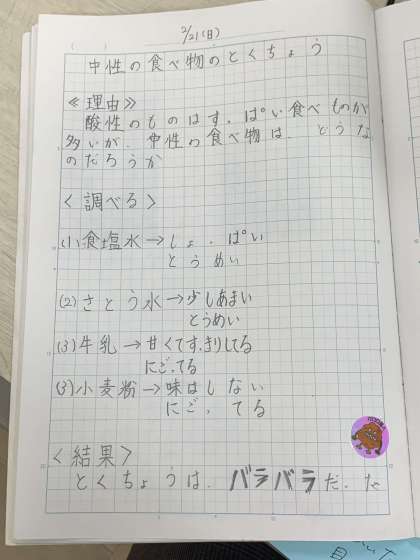 2/21(日)
中性の食べ物のとくちょう
≪理由≫
酸性のものはすっぱい食べものが
多いが、中性の食べ物は どうな
のだろうか
<調べる>
(1)食塩水→しょっぱい
とうめい
(2)さとう水→少しあまい
とうめい
(3)牛乳→甘くてすっきりしてる
にごってる
(3)小麦粉→味はしない
にごってる
<結果>
とくちょうは、バラバラだった